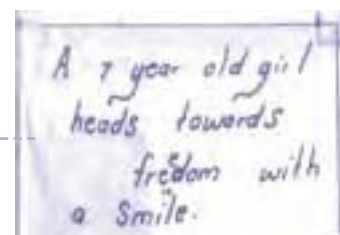 A 7 year old girl
heads towards
fredom with
a smile.